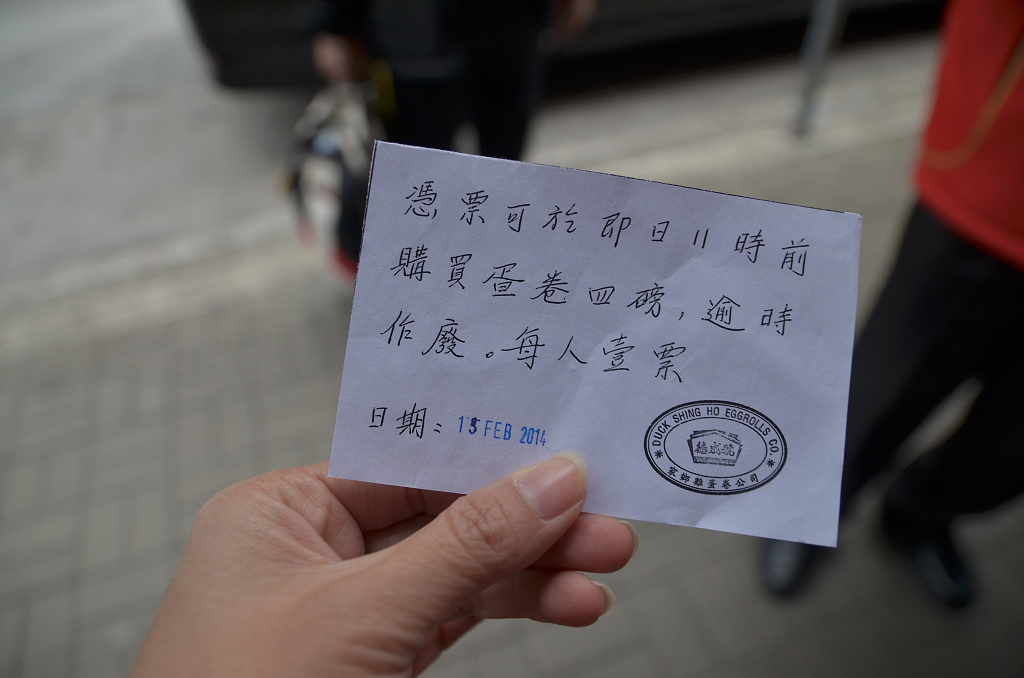 憑票可於即日11時前
購買蛋卷四磅,逾時
作廢。每人壹票
日期: 13 FEB 2014
DUCK SHING HO EGGROLLS CO.
德成號
家鄉雞蛋卷公司